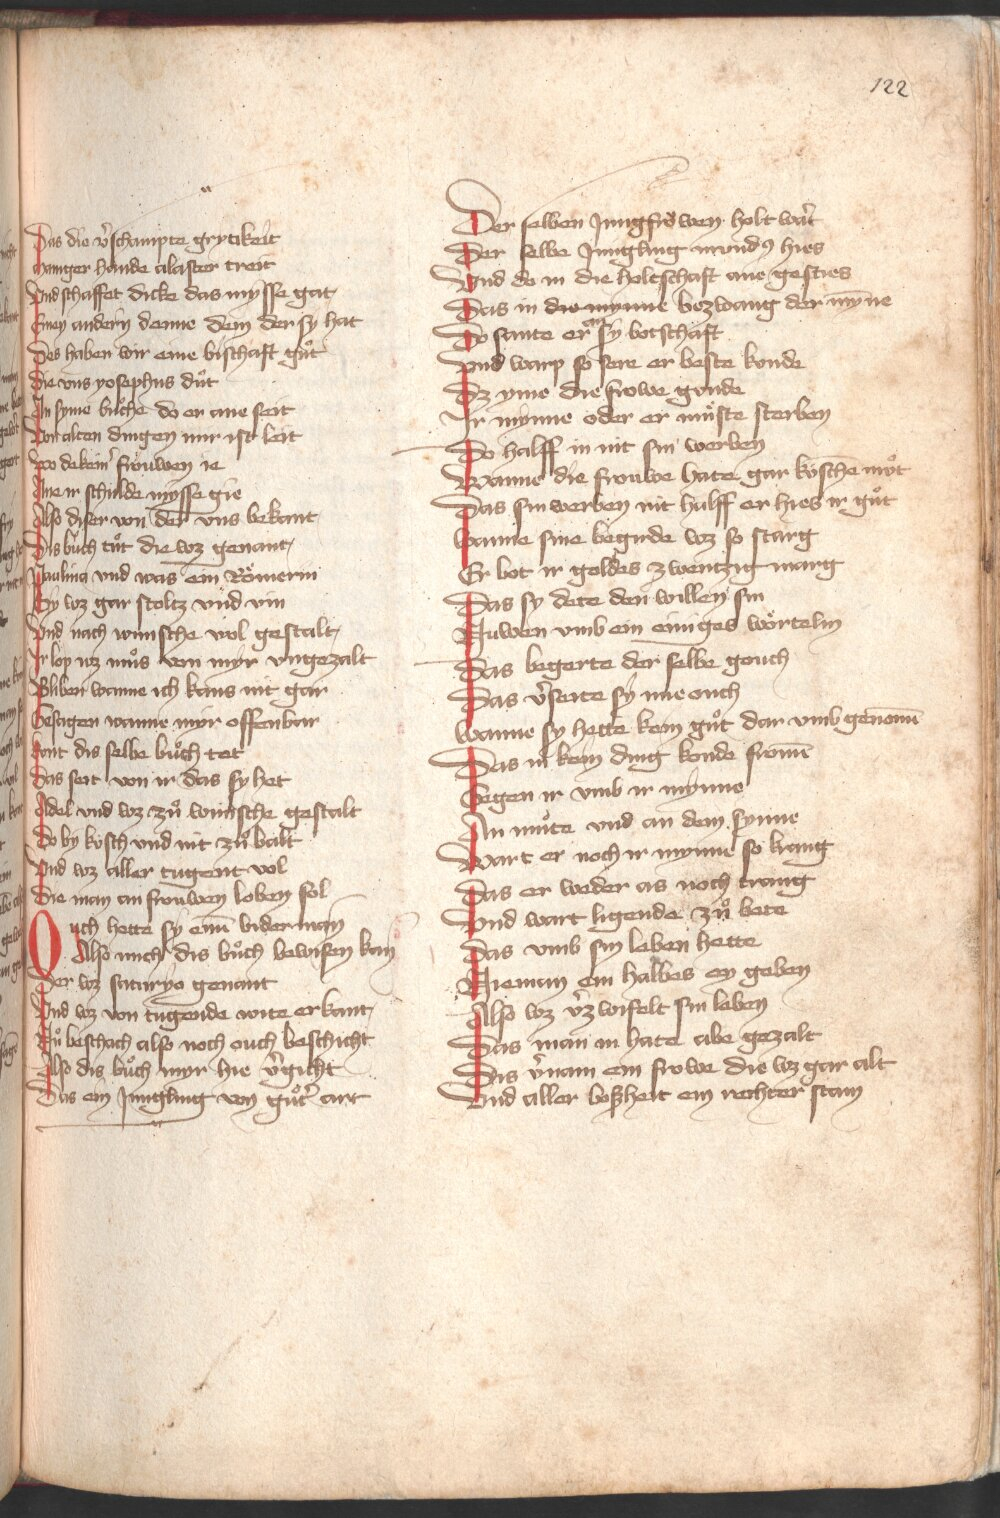 122
Das die v̉schampte grytikeit
Maniger hande alaster treit
Vnd schaffet dicke das mysse gat
Einen andern denne dem der sy hat
Des haben wir eine bischaft gůt
Die vns yosephus důt
In syme bůche do er ane seit
Von alten dingen mir ist leit
Wo dekein frouwen ie
Ane ir schulde mysse gie
Also diser von der vns bekant
Dis bůch tůt die wz genant
Paulina vnd was ein Rőmerin
Sy wz gar stoltz vnd vin
Vnd nach wunsche wol gestalt
Ir lop vz můs von myr vngezalt
Bliben wanne ich kans nit gar
Gesagen wanne myr offenbar
Kant dis selbe bůch tet
Das seit von ir das sy het
Adel vnd wz zů wunsche gestalt
Do by kúsch vnd nit zů balt
Vnd wz aller tugent vol
Die man an frouwen loben sol
Ouch hette sy einē biderman
Also mich dis bůch bewisen kan
Der wz saturyo genant
Vnd wz von tugende wite erkant
Nů beschach also noch ouch beschicht
Also dis bůch myr hie v̉gicht
Das ein Jungling von gůt̉ art
Der selben Jungfrowen holt wart
Der selbe Jungling mundꝰ hies
Vnd do in die holtschaft ane gesties
Das in die mynne bezwang der mȳne
Do sante er an sy botschaft
Vnd warp so sere er beste konde
Dz yme die frowe gonde
Ir mynne oder er můste sterben
Do halff in nit sin werben
Wanne die frouwe hate gar kúsche můt
Das sin werben nit halff er hies ir gůt
Wanne sine begirde wz so starg
Er bot ir goldes zwentzig marg
Das sy dete den willen sin
Nuwen vmb ein einiges wőrtelin
Das begerte der selbe gouch
Das v̉seite sy ime ouch
Wanne sy hette kein gůt dar vmb genomē
Das in kein ding konde fromē
Gegen ir vmb ir mynne
An můte vnd an dem synne
Wart er noch ir mynne so krang
Das er weder as noch trang
Vnd wart ligende zů bete
Das vmb sin leben hette
Nieman ein halbes ey geben
Also wz v̉zwifelt sin leben
Das man in hate abe gezalt
Dis v̉nam ein frowe die wz gar alt
Vnd aller boßheit ein rechter stam